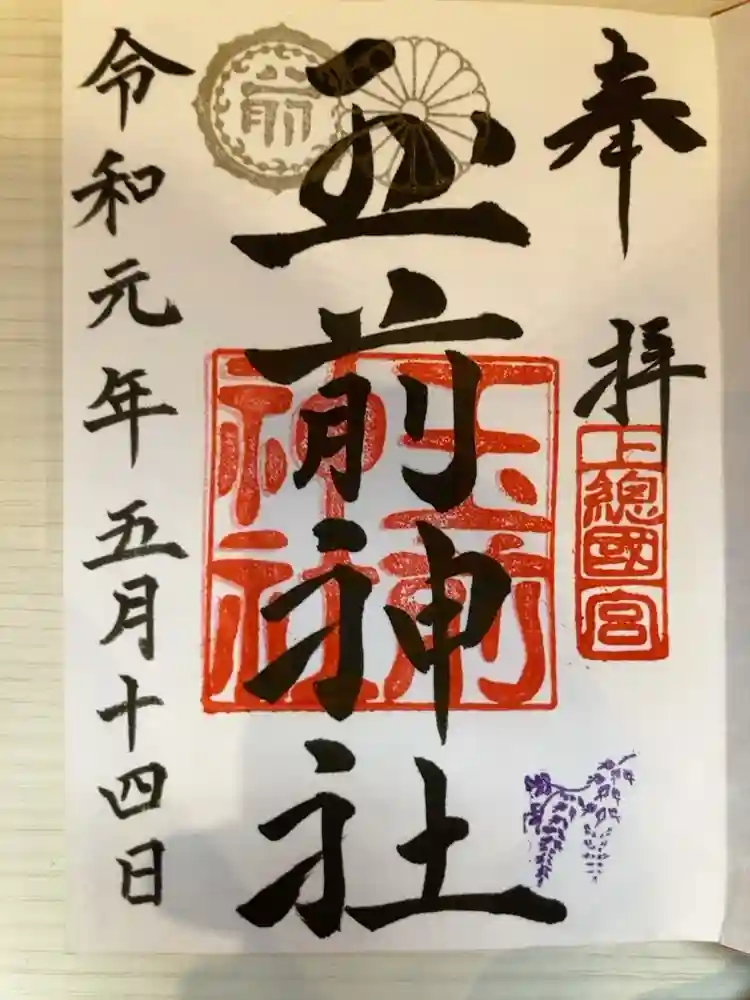 奉拝
上總國一宮
玉前神社
玉前
神社
前
令和元年五月十四日